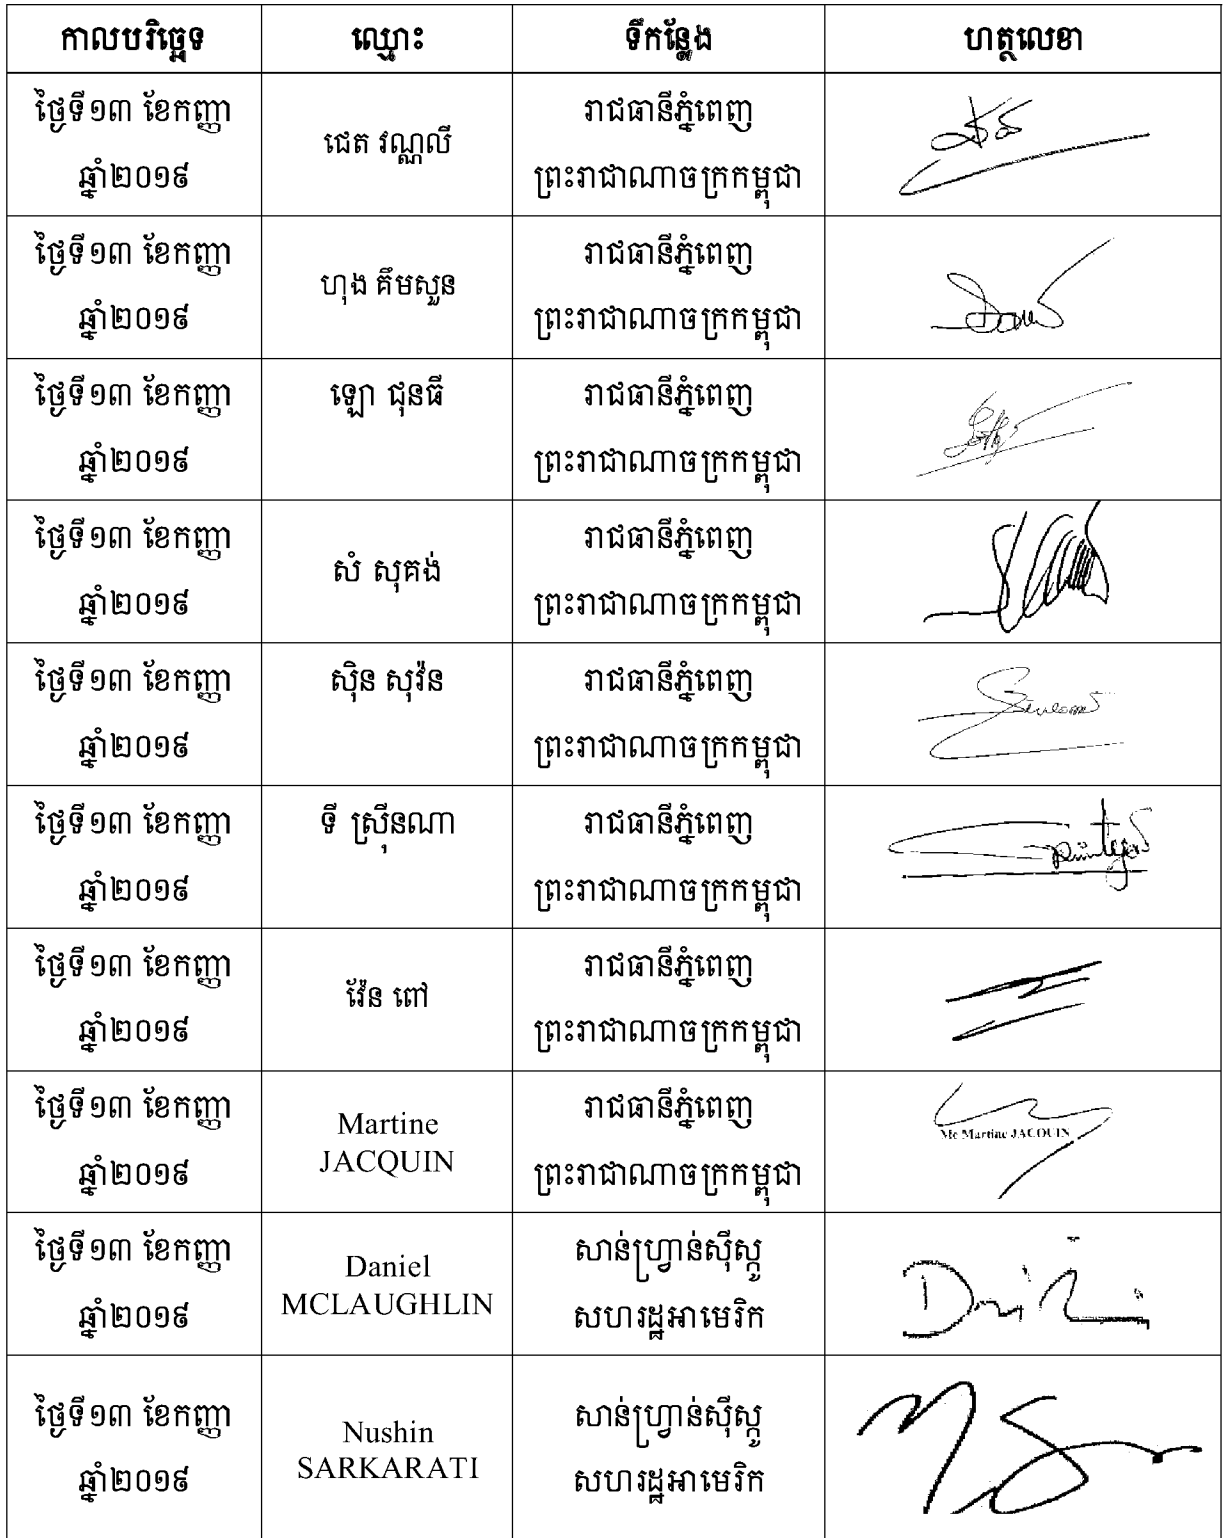 កាលបរិច្ឆេទ ឈ្មោះ ទីកន្លែង ហត្ថលេខា
ថ្ងៃទី១៣ ខែកញ្ញា
ឆ្នាំ២០១៩
ជេត វណ្ណលី
រាជធានីភ្នំពេញ
ព្រះរាជាណាចក្រកម្ពុជា
ថ្ងៃទី១៣ ខែកញ្ញា
ឆ្នាំ២០១៩
ហុង គឹមសួន
រាជធានីភ្នំពេញ
ព្រះរាជាណាចក្រកម្ពុជា
ថ្ងៃទី១៣ ខែកញ្ញា
ឆ្នាំ២០១៩
ឡោ ជុនធី
រាជធានីភ្នំពេញ
ព្រះរាជាណាចក្រកម្ពុជា
ថ្ងៃទី១៣ ខែកញ្ញា
ឆ្នាំ២០១៩
សំ សុគង់
រាជធានីភ្នំពេញ
ព្រះរាជាណាចក្រកម្ពុជា
ថ្ងៃទី១៣ ខែកញ្ញា
ឆ្នាំ២០១៩
ស៊ិន សុវ៉ន
រាជធានីភ្នំពេញ
ព្រះរាជាណាចក្រកម្ពុជា
ថ្ងៃទី១៣ ខែកញ្ញា
ឆ្នាំ២០១៩
ទី ស្រ៊ីនណា
រាជធានីភ្នំពេញ
ព្រះរាជាណាចក្រកម្ពុជា
ថ្ងៃទី១៣ ខែកញ្ញា
ឆ្នាំ២០១៩
វ៉ែន ពៅ
រាជធានីភ្នំពេញ
ព្រះរាជាណាចក្រកម្ពុជា
ថ្ងៃទី១៣ ខែកញ្ញា
ឆ្នាំ២០១៩
Martine
JACQUIN
រាជធានីភ្នំពេញ
ព្រះរាជាណាចក្រកម្ពុជា
Me Martine JACQUIN
ថ្ងៃទី១៣ ខែកញ្ញា
ឆ្នាំ២០១៩
Daniel
MCLAUGHLIN
សាន់ហ្វ្រាន់ស៊ីស្កូ
សហរដ្ឋអាមេរិក
ថ្ងៃទី១៣ ខែកញ្ញា
ឆ្នាំ២០១៩
Nushin
SARKARATI
សាន់ហ្វ្រាន់ស៊ីស្កូ
សហរដ្ឋអាមេរិក